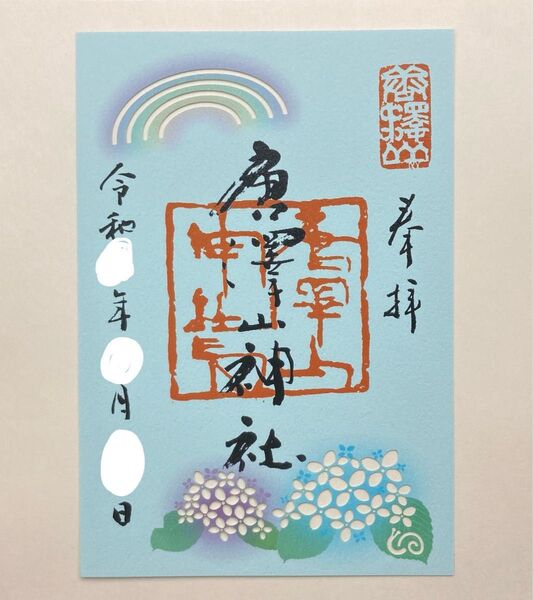 唐澤山
奉拝
唐澤山神社
令和 年 月 日